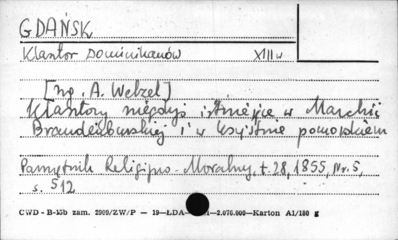 GDAŃSK
Klasztor Dominikanów XIII w
[np. A. Welzel]
Klasztory niegdyś istniejące w Marchii
Brandenburskiej i w Księstwie pomorskiem
Pamiętnik Religijno-Moralny, t. 28, 1855, Nr. 5,
s. 512
CWD - B-15b zam. 2909/ZW/P — 19—ŁDA— —2.076.000—Karton A1/180 g